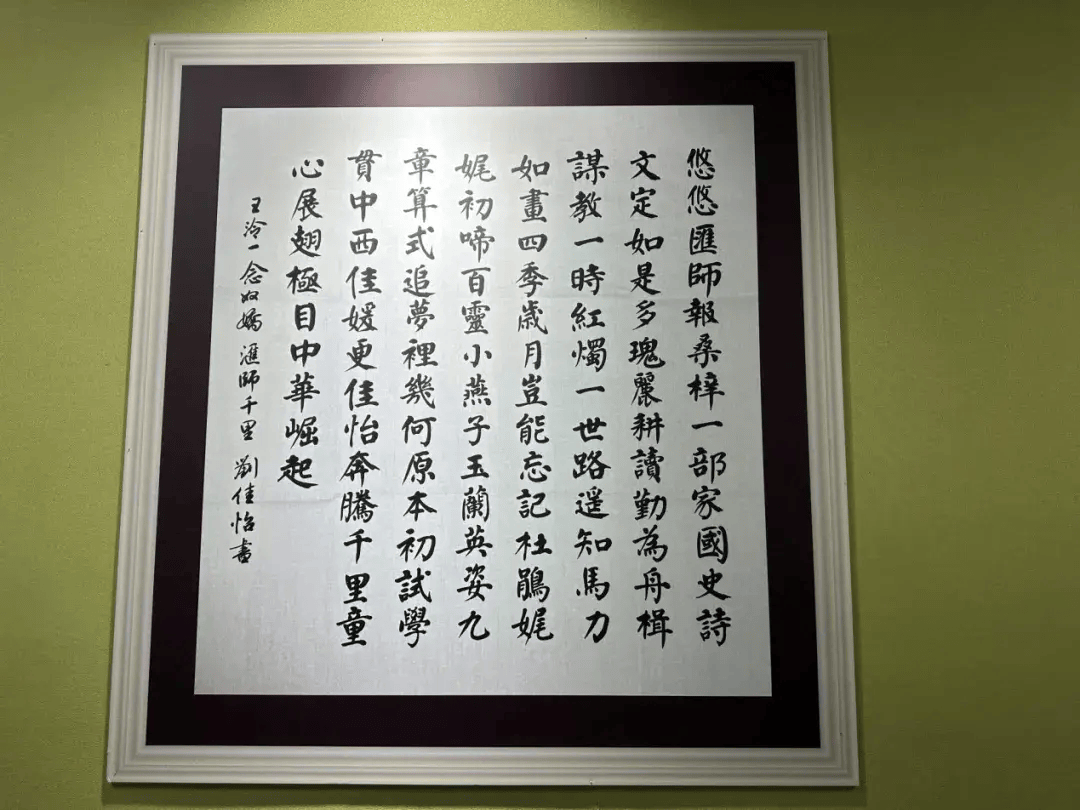 悠悠匯師報桑梓一部家國史詩
文定如是多瑰麗耕讀勤為舟楫
謀教一時紅燭一世路遥知馬力
如畫四季歲月豈能忘記杜鵑娓
娓初啼百靈小燕子玉蘭英姿九
章算式追夢裡幾何原本初試學
貫中西佳媛更佳怡奔騰千里童
心展翅極目中華崛起
王泠一念奴嬌 滙師千里 劉佳怡書